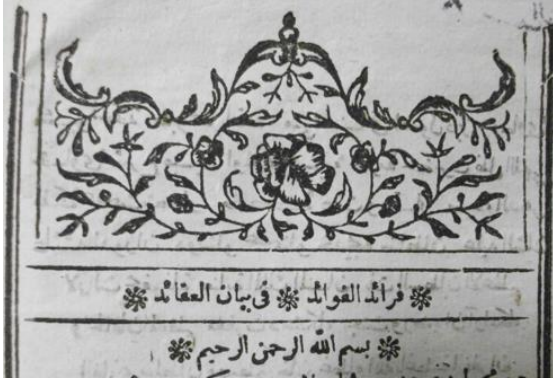 فرائد الفوائد في بيان العقائد
بسم الله الرحمن الرحيم